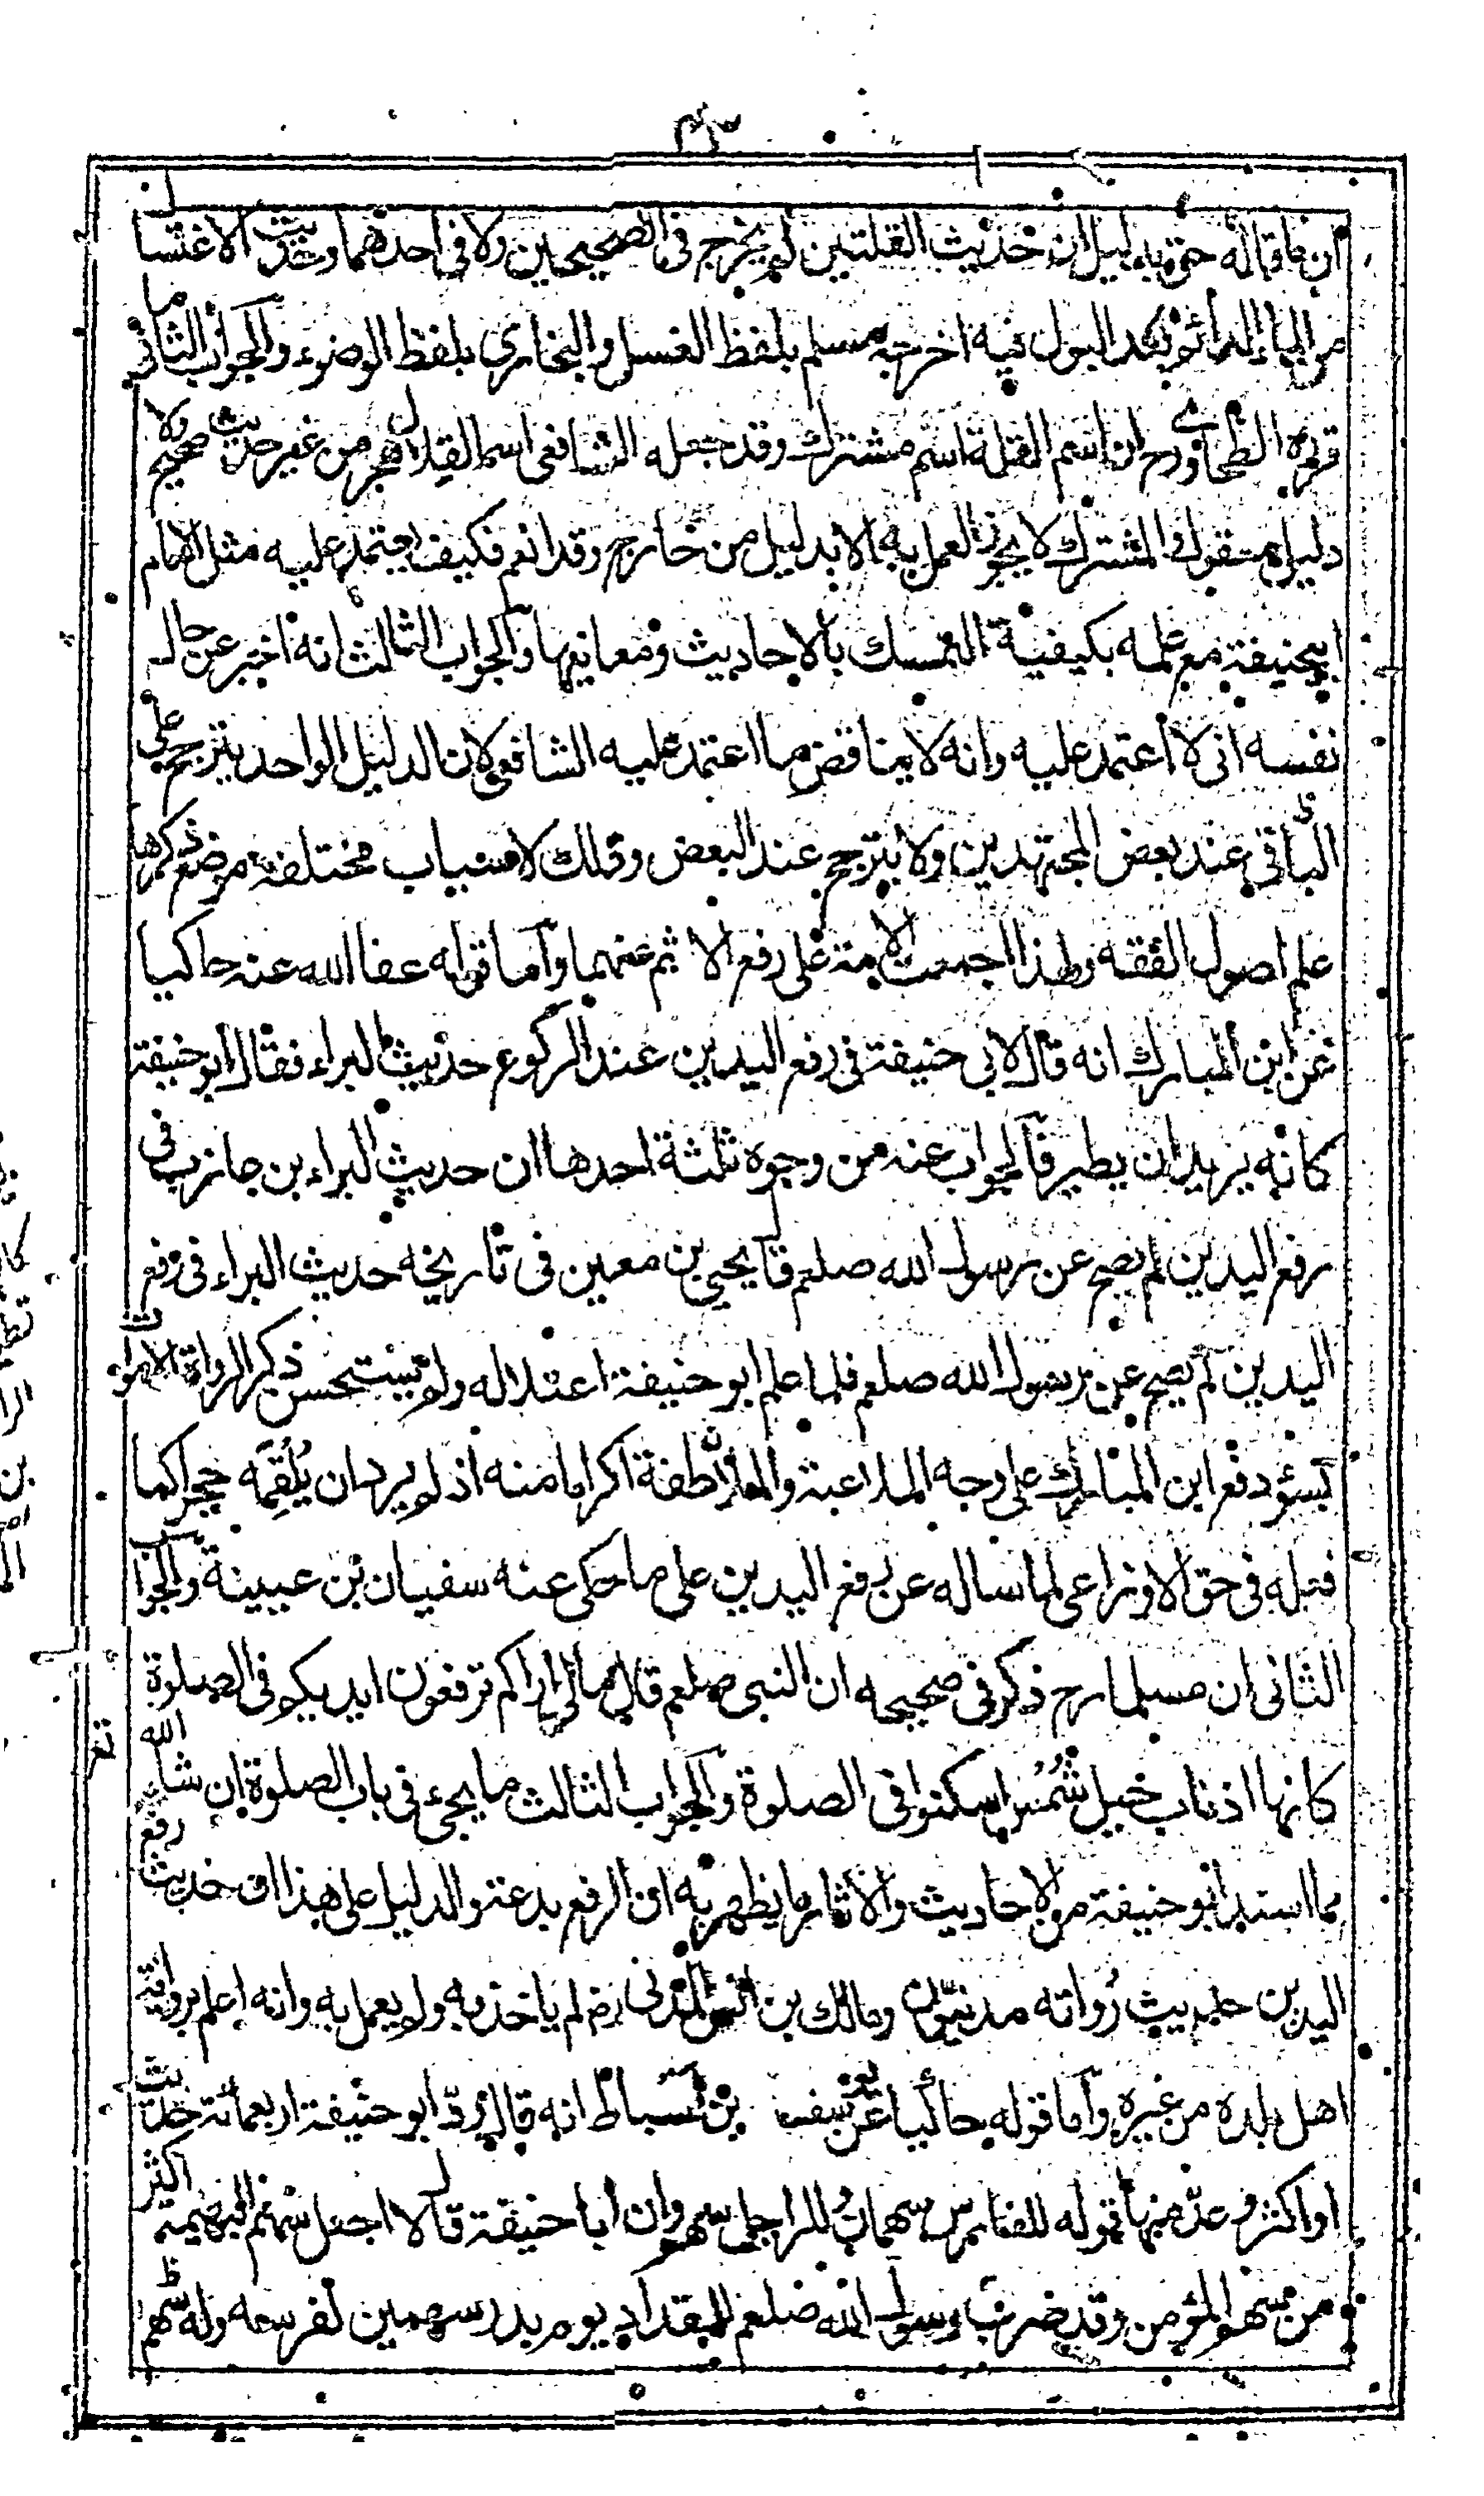 ٤٣
ان ما قاله حق بدليل ان حديث القلتين لم يخرج فى الصحيحين ولا فى احدهما وحديث الاغتسال
من الماء الدائم بعد البول فيه اخرجه مسلم بلفظ الغسل والبخارى بلفظ الوضوء والجواب الثانى ما
قرره الطحاوى رح ان اسم القلة اسم مشترك وقد جعله الشافعى اسما لقلال هجر من غير حديث صحيح ولا
دليل منقول والمشترك لا يجوز العمل به الا بدليل من خارج وقد انعم فكيف يعتمد عليه مثل الامام
ابيحنيفة مع علمه بكيفية التمسك بالاحاديث ومعانيها والجواب الثالث انه اخبر عن حال
نفسه انى لا اعتمد عليه وانه لا يناقض ما اعتمد عليه الشافعى لان الدليل الواحد يترجح على
الباقى عند بعض المجتهدين ولا يترجح عند البعض وذلك لاسباب مختلفة موضع ذكرها
علم اصول الفقه ولهذا اجمعت الامة على رفع الاثم عنهما واما قوله عفا الله عنه حاكيا
عن ابن المبارك انه قال لابى حنيفة فى رفع اليدين عند الركوع حديث البراء فقال ابو حنيفة
كانه يريد ان يطير فالجواب عنه من وجوه ثلثة احدها ان حديث البراء بن عازب فى
رفع اليدين لم يصح عن رسول الله صلعم قال يحيى بن معين فى تاريخه حديث البراء فى رفع
اليدين لم يصح عن رسول الله صلعم فلما علم ابو حنيفة اعتلاله ولم يستحسن ذكر الرواة الاموات
بسوء دفع ابن المبارك على وجه الملاعبة والملاطفة اكراما منه اذ لم يرد ان يُلْقِمَه حجرا كما
فعله فى حق الاوزاعى لما ساله عن رفع اليدين على ما حكى عنه سفيان بن عيينة والجواب
الثانى ان مسلما رح ذكر فى صحيحه ان النبى صلعم قال مالى اراكم ترفعون ايديكم فى الصلوة
كانها اذناب خيل شُمُس اسكنوا فى الصلوة والجواب الثالث ما يجىء فى باب الصلوة ان شاء الله تع
مما استدل ابو حنيفة من الاحاديث والآثار ما يظهر به ان الرفع بدعة والدليل على هذا ان حديث رفع
اليدين حديث رُواته مدنيّون ومالك بن انس المدنى رض لم ياخذ به ولم يعمل به وانه اعلم برواية
اهل بلده من غيره واما قوله حاكيا عن يوسف بن اسباط انه قال ردّ ابو حنيفة اربعمائة حديث
او اكثر وعدّ منها قوله للفارس سهمان وللراجل سهم وان ابا حنيفة قال لا اجعل سهم البهيمة اكثر
من سهم المؤمن وقد ضرب رسول الله صلعم للمقداد يوم بدر سهمين لفرسه وله سهم